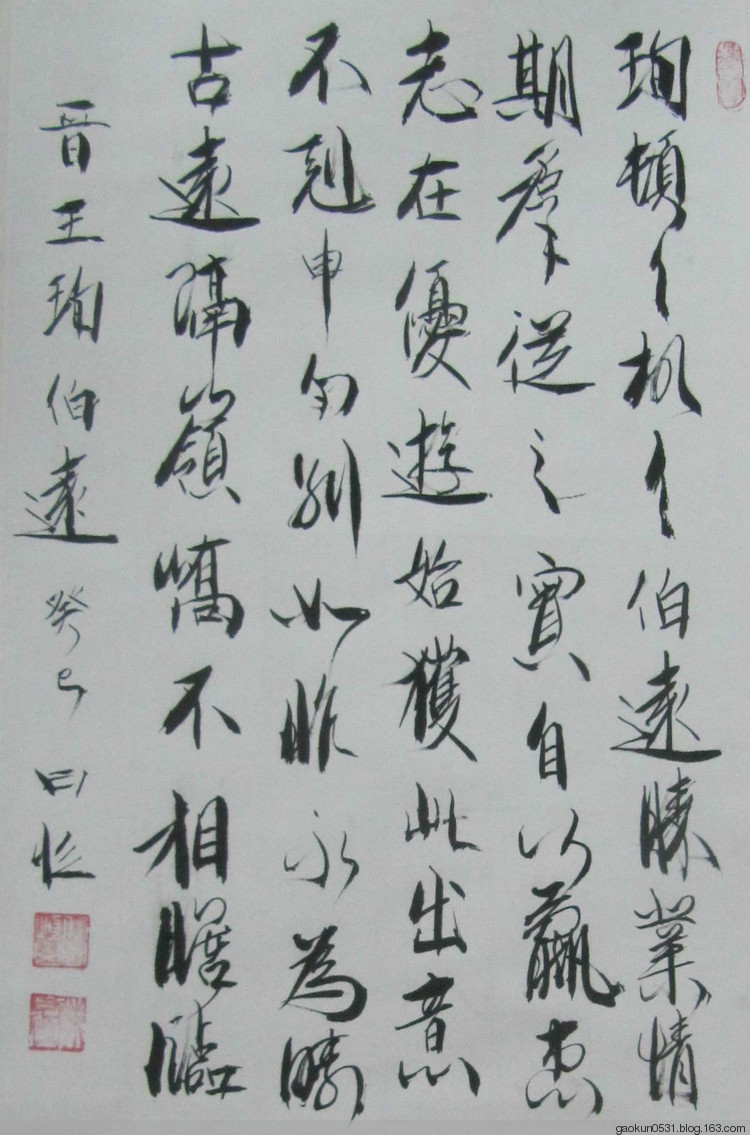 珣頓〻机〻伯遠勝業情
期群從之寶自以羸患
志在優遊始獲此出意
不剋申勿別如昨永為疇
古遠隔嶺嶠不相瞻臨
晋王珣伯遠癸巳
gaokun0531.blog.163.com